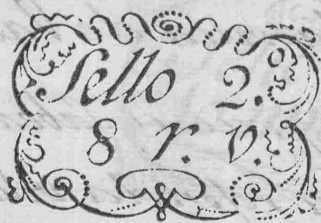 Sello 2.º
8 r. v.